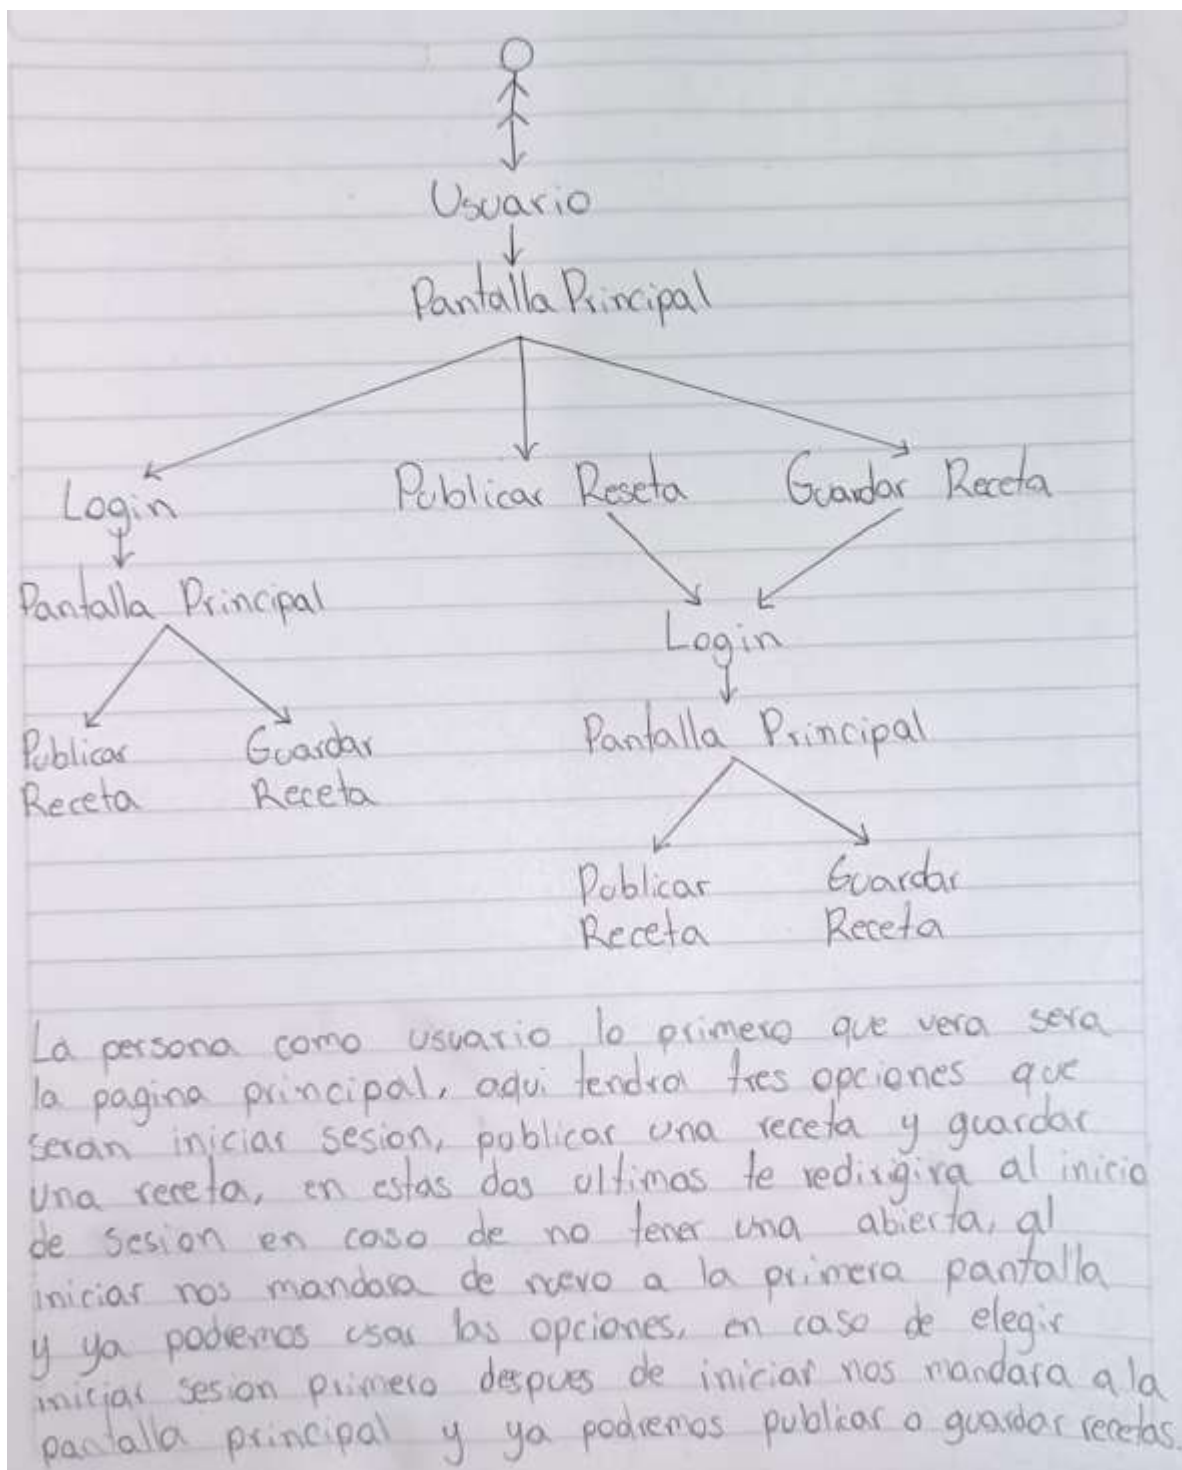 Usuario
Pantalla Principal
Login
Publicar Reseta
Guardar Receta
Pantalla Principal
Login
Publicar
Receta
Guardar
Receta
Pantalla Principal
Publicar
Receta
Guardar
Receta
La persona como usuario lo primero que vera sera
la pagina principal, aqui tendra tres opciones que
seran iniciar sesion, publicar una receta y guardar
una receta, en estas dos ultimas te redirigira al inicio
de sesion en caso de no tener una abierta, al
iniciar nos mandara de nuevo a la primera pantalla
y ya podremos usar las opciones, en caso de elegir
iniciar sesion primero despues de iniciar nos mandara a la
pantalla principal y ya podremos publicar o guardar recetas.